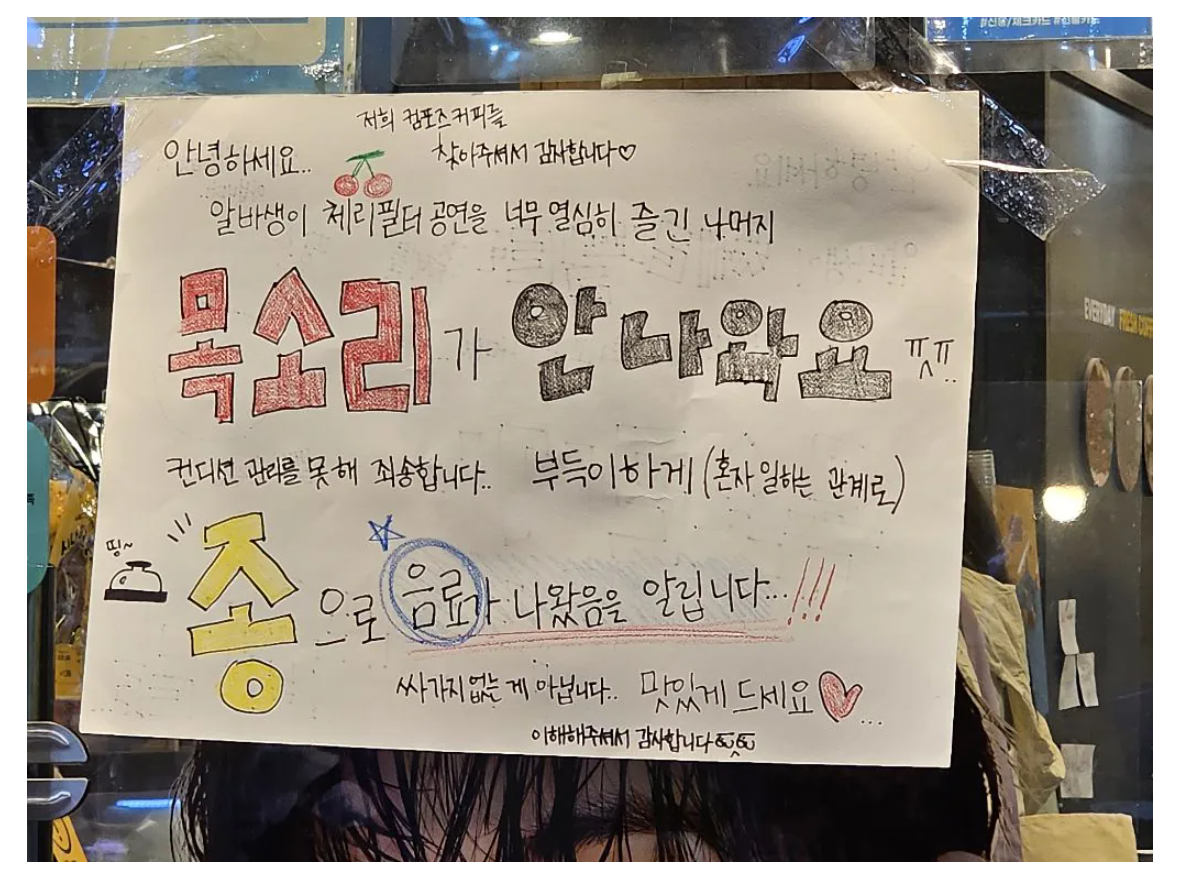 #신용/체크카드 #선불카드
저희 컴포즈커피를
안녕하세요.. 찾아주셔서 감사합니다♡
알바생이 체리필터 공연을 너무 열심히 즐긴 나머지
목소리가 안나와요 ㅠㅠ..
컨디션 관리를 못해 죄송합니다.. 부득이하게 (혼자 일하는 관계로)
띵~
종으로 음료가 나왔음을 알립니다...!!!
싸가지없는 게 아닙니다.. 맛있게 드세요♡...
이해해주셔서 감사합니다
EVERYDAY FRESH COFF